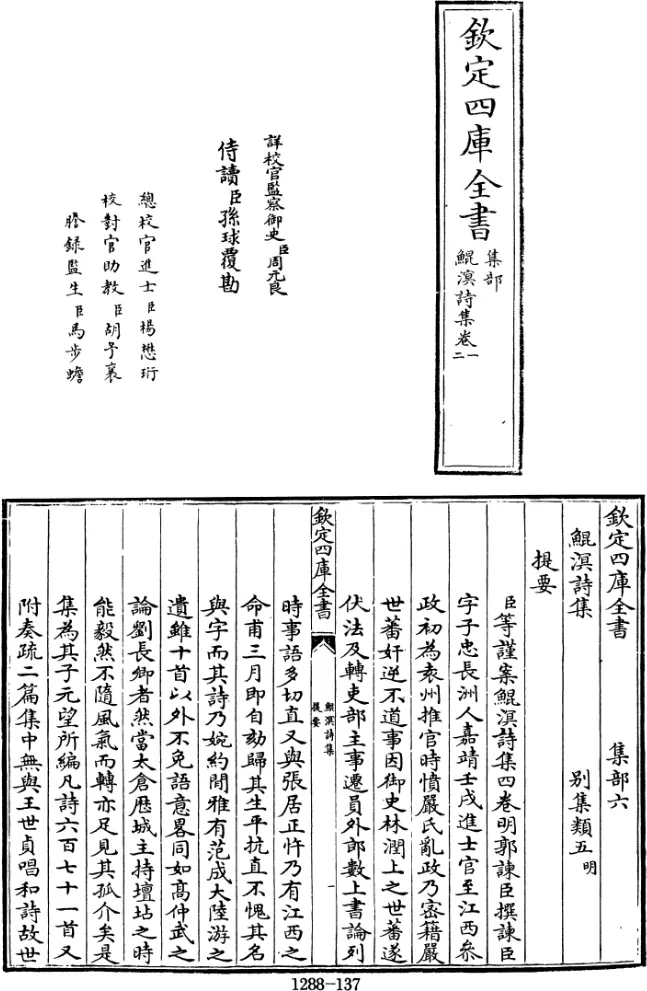 欽定四庫全書
集部
鯤溟詩集卷一
二
詳校官監察御史臣周元良
侍讀臣孫球覆勘
總校官進士臣楊懋珩
校對官助教臣胡予襄
謄錄監生臣馬步蟾
欽定四庫全書 集部六
鯤溟詩集 别集類五明
提要
臣等謹案鯤溟詩集四卷明郭諫臣撰諫臣
字子忠長洲人嘉靖壬戌進士官至江西叅
政初為袁州推官時憤嚴氏亂政乃密籍嚴
世蕃奸逆不道事因御史林潤上之世蕃遂
伏法及轉吏部主事遷員外郎數上書論列
欽定四庫全書
鯤溟詩集
提要
一
時事語多切直又與張居正忤乃有江西之
命甫三月即自劾歸其生平抗直不愧其名
與字而其詩乃婉約閒雅有范成大陸游之
遺雖十首以外不免語意畧同如高仲武之
論劉長卿者然當太倉歴城主持壇坫之時
能毅然不隨風氣而轉亦足見其孤介矣是
集為其子元望所編凡詩六百七十一首又
附奏疏二篇集中無與王世貞唱和詩故世
1288-137